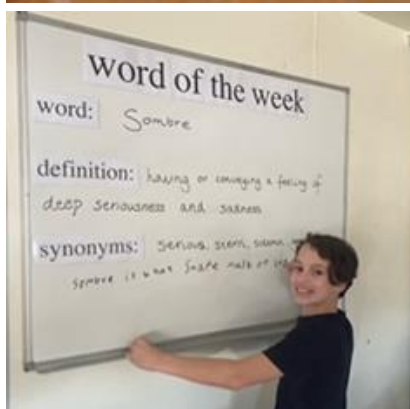 word of the week
word: Sombre
definition: having or conveying a feeling of
deep seriousness and sadness
synonyms: serious, stern, solemn,
sombre is what